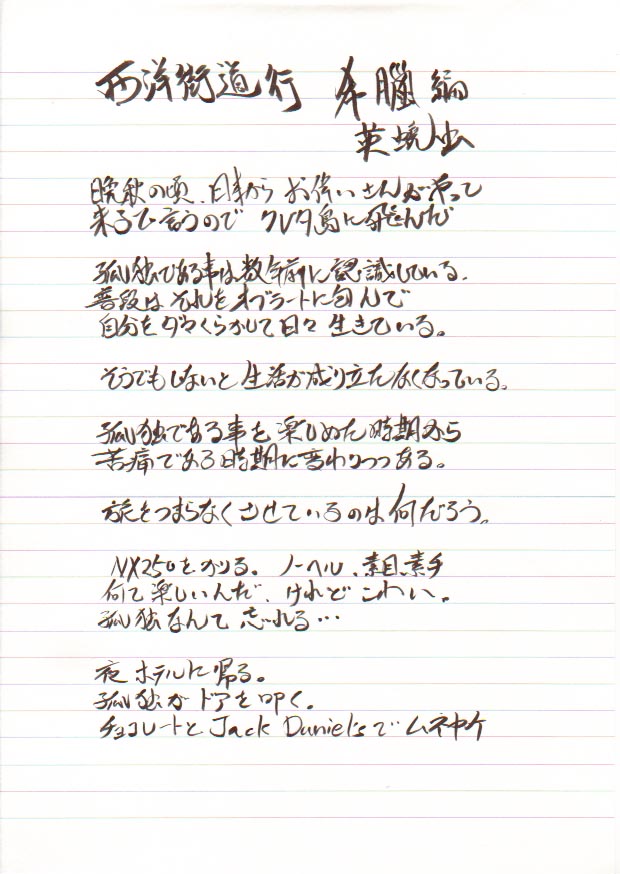 西洋街道行 希臘編
英蜆虫
晩秋の頃、日本から お偉いさんがやって
来ると言うので クレタ島に飛んだ
孤独である事は数年前に認識している。
普段は それをオブラートに包んで
自分をダマくらかして日々 生きている。
そうでもしないと 生活が成り立たなくなっている。
孤独である事を 楽しめた時期から
苦痛である時期に変わりつつある。
旅をつまらなくさせているのは 何だろう。
NX250をかりる。 ノーヘル、素目、素手
何て楽しいんだ、けれど こわい。
孤独なんて 忘れる…
夜 ホテルに帰る。
孤独が ドアを叩く。
チョコレートと Jack Daniel's で ムネヤケ